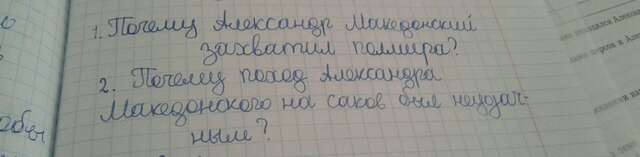 1. Почему Александр Македонский
захватил полмира?
2. Почему поход Александра
Македонского на саков был неудач-
ным?